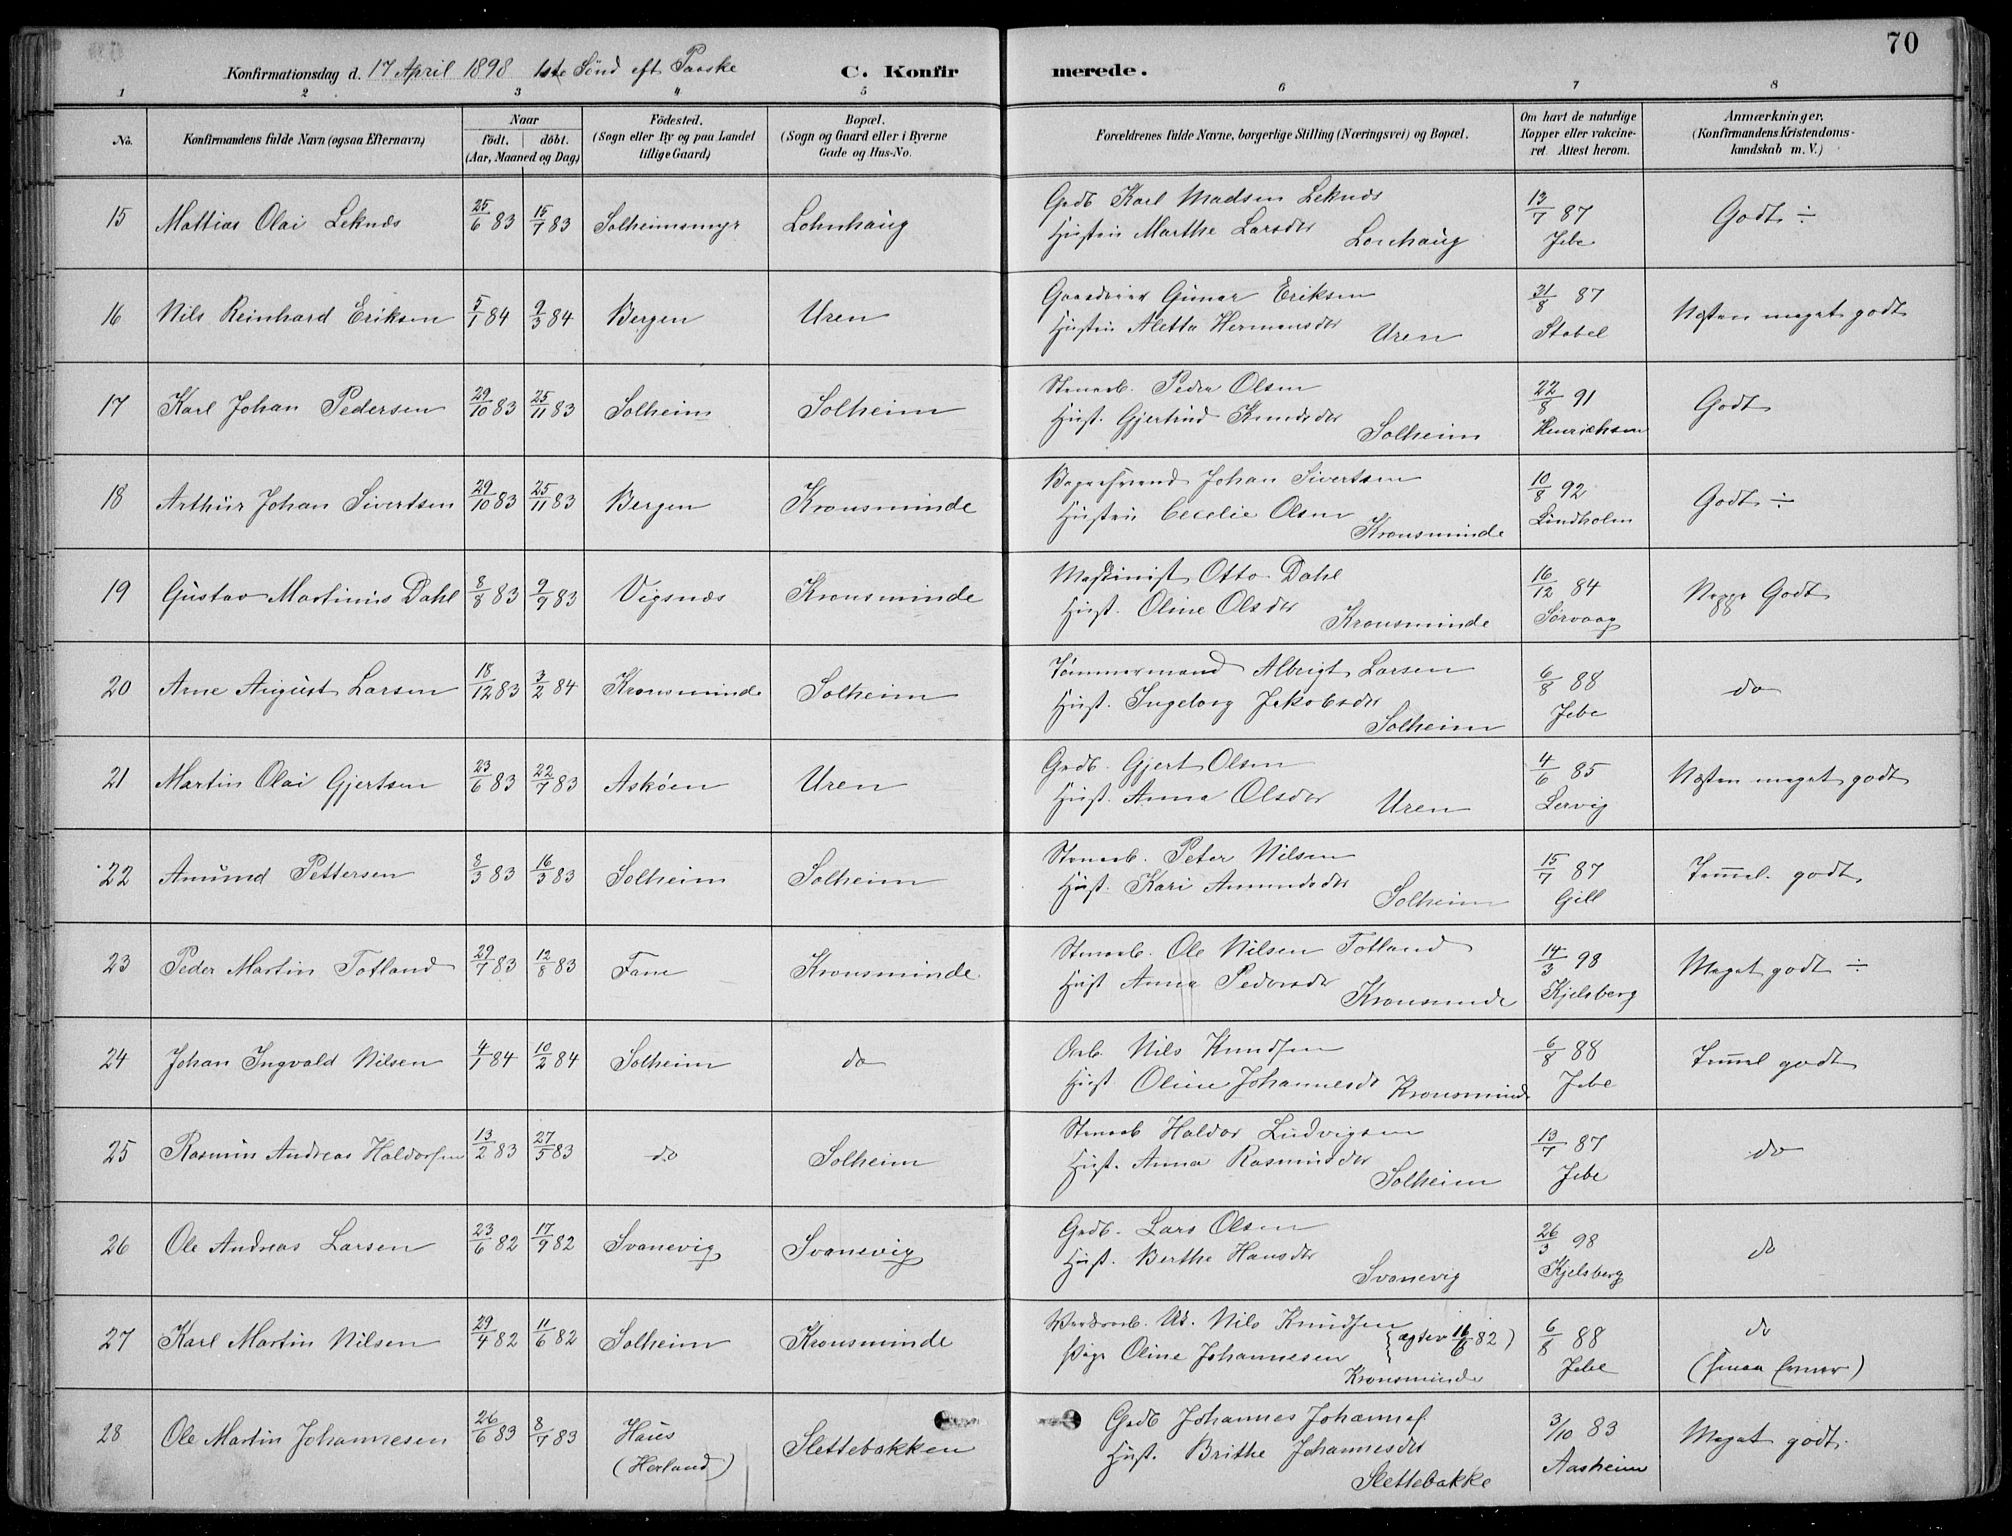 70
Konfirmationsdag d. 17 April 1898 1ste Sönd eft Paaske C. Konfir merede.
1 2 3 4 5 6 7 8
No. Konfirmandens fulde Navn (ogsaa Efternavn) Naar født. døbt. (Aar, Maaned og Dag) Fødested. (Sogn eller By og paa Landet tillige Gaard) Bopæl. (Sogn og Gaard eller i Byerne Gade og Hus-No. Forældrenes fulde Navne, borgerlige Stilling (Næringsvei) og Bopæl. Om havt de naturlige Kopper eller vakcineret. Attest herom. Anmærkninger. (Konfirmandens Kristendomskundskab m. V.)
15 Mattias Olai Leknæs 25/6 83 15/7 83 Solheimsmyr Lohnhaug Grdb Karl Madsen Leknæs 13/7 87 Godt ÷
Hustru Marthe Larsdr Lonhaug Jebe
16 Nils Reinhard Eriksen 5/1 84 9/3 84 Bergen Uren Gunar Eriksen 31/8 87 Næsten meget godt
Hustru Aletta Hermansdr Uren Stabel
17 Karl Johan Pedersen 29/10 83 25/11 83 Solheim Solheim Stenarb. Peder Olsen 22/8 91 Godt
Hust. Gjertrud Knudsdr Solheim Henrichsen
18 Arthur Johan Sivertsen 29/10 83 25/11 83 Bergen Kronsminde Johan Sivertsen 10/8 92 Godt ÷
Hustru Cecelie Olsen Kronsminde Lindholm
19 Gustav Martinus Dahl 8/8 83 9/9 83 Vigsnæs Kronsminde Maskinist Otto Dahl 16/12 84 Neppe Godt
Hust. Oline Olsdr Kronsminde Sørvaag
20 Arne August Larsen 18/12 83 3/2 84 Kronsminde Solheim Tømmermand Albrigt Larsen 6/8 88 do
Hust. Ingeborg Jakobsdr Solheim Jebe
21 Martin Olai Gjertsen 23/6 83 22/7 83 Askøen Uren Grdb. Gjert Olsen 4/6 85 Næsten meget godt
Hust. Anna Olsdr Uren Lervig
22 Amund Pettersen 8/3 83 16/3 83 Solheim Solheim Stenarb. Peter Nilsen 15/7 87 Temmel. godt
Hust. Kari Amundsdr Solheim Gill
23 Peder Martin Totland 29/7 83 12/8 83 Fane Kronsminde Stenarb. Ole Nilsen Totland 14/3 98 Meget godt ÷
Hust Anna Pedersdr Kronsminde Kjelsberg
24 Johan Ingvald Nilsen 4/1 84 10/2 84 Solheim do Arb. Nils Knudsen 6/8 88 Temmel godt
Hust Oline Johannesdr Kronsminde Jebe
25 Rasmus Andreas Haldorsen 13/2 83 27/5 83 do Solheim Stenarb Haldor Ludvigsen 13/7 87 do
Hust. Anna Rasmusdr Solheim Jebe
26 Ole Andreas Larsen 23/6 82 17/9 82 Svanevig Svanevig Grdb. Lars Olsen 26/3 98 do
Hust. Berthe Hansdr Svanevig Kjelsberg
27 Karl Martin Nilsen 29/4 82 11/6 82 Solheim Kronsminde Nils Knudsen 6/8 88 do
Pige Oline Johannesen (ægtev 16/6 82) Jebe
Kronsminde
28 Ole Martin Johannesen 26/6 83 8/7 83 Haus Slettebakken Grdb Johannes Johannes. 3/10 83 Meget godt.
(Herland) Hust. Brithe Johannesdr Aasheim
Slettebakke